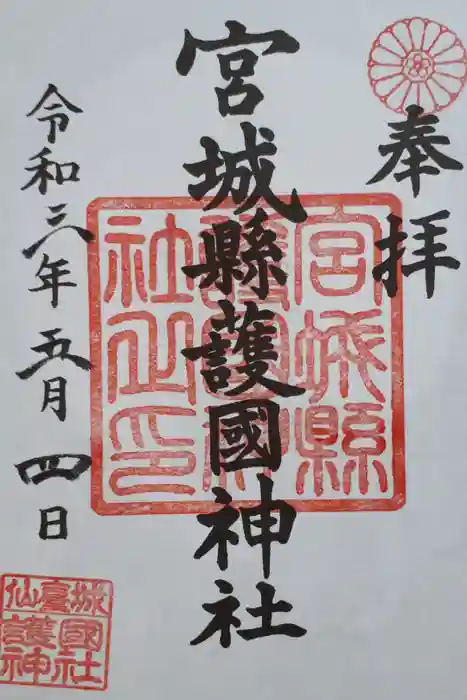 奉拝
宮城縣護國神社
令和三年五月四日
宮城縣護國神社之印
仙臺城護國神社